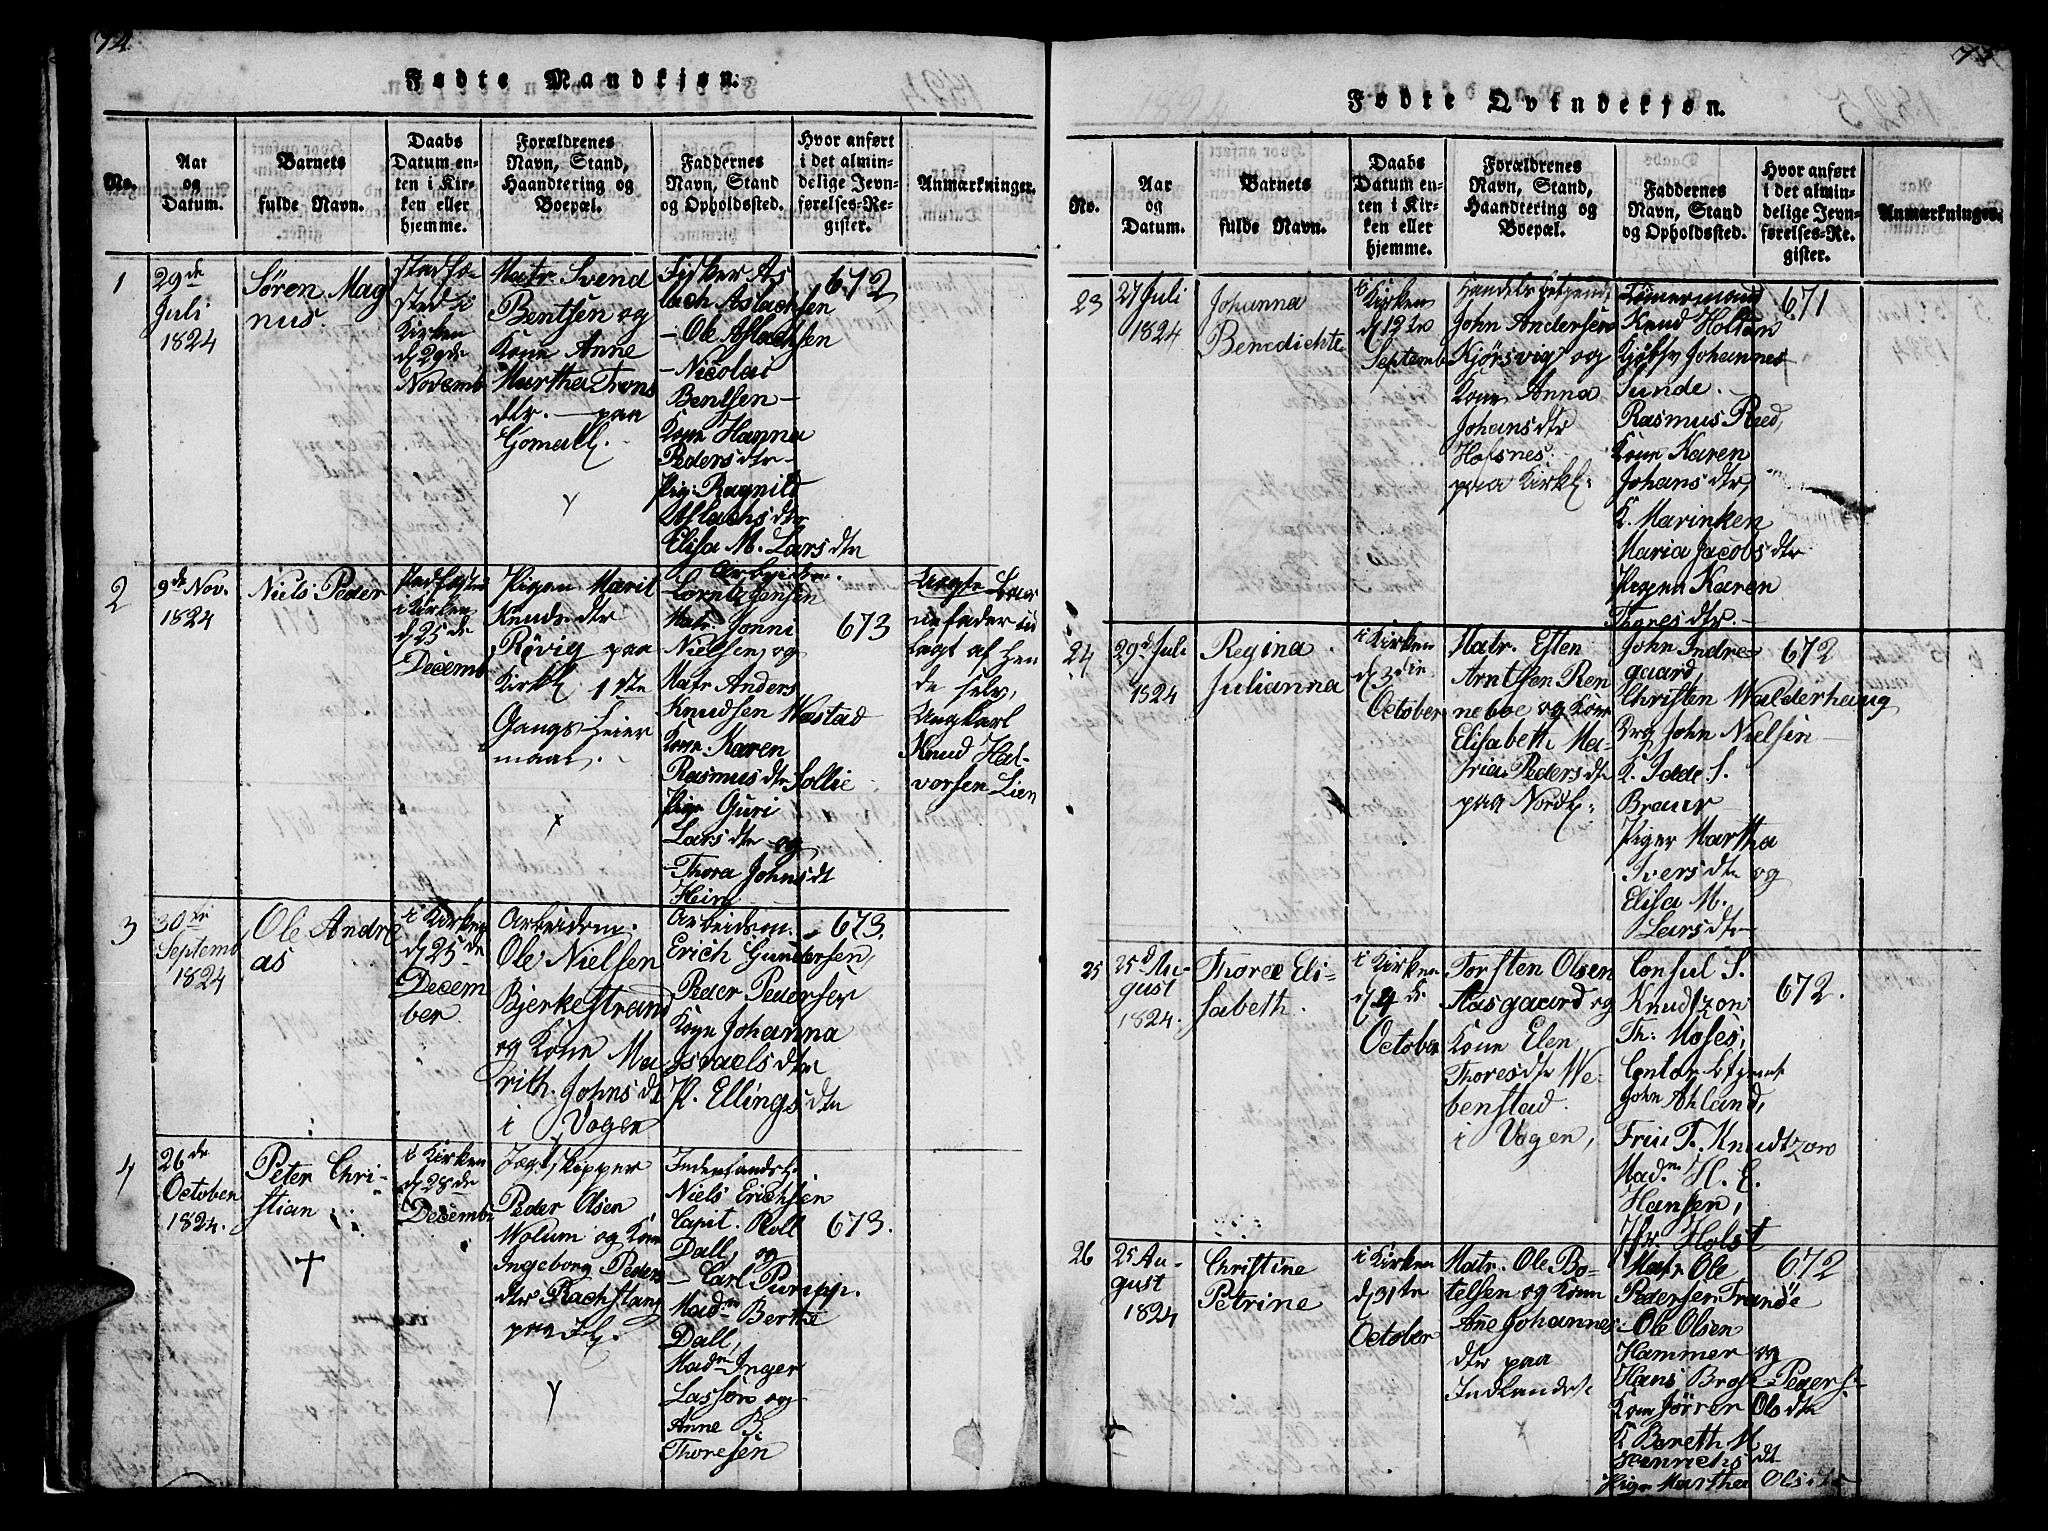 74.
Fødte Mandkjøn.
No.
Aar
og
Datum.
Barnets
fulde Navn.
Daabs
Datum en-
ten i Kir-
ken eller
hjemme.
Forældrenes
Navn, Stand,
Haandtering og
Boepæl.
Faddernes
Navn, Stand
og Opholdssted.
Hvor anført
i det almin-
delige Jevn-
førelses-Re-
gister.
Anmærkninger.
1
29de
Juli
1824
Søren Mag
nus.
Kirken
d 29de
Novemb
Matr. Svend
Bentsen og
Kone Anne
Martha Trons
dtr. paa
Gomall.
Fisker As
lach Aslachsen
- Ole Aslachsen
- Nicolai
Bentsen -
Kone Hanna
Pedersdtr -
Pig: Ragnild
Aslachsdtr
Elisa M. Larsdtr
672
2
9de Nov.
1824
Niels Peder
i Kirken
d 25de
Decemb
Pigen Marit
Knudsdtr
Røvig paa
Kirkl 1ste
Gangs Leier
maal.
Arbeidsm.
Lornts Jensen
Matr. Jonni
Nielsen, og
Matr Anders
Knudsen Wæstad
Kone Karen
Rasmusdtr Sollie
Pige Guri
Larsdtr og
Thora Johnsdt
Hein
673
Uægte Bar
nefader ud
lagt af Hen
de selv,
Ungkarl
Knud Hal-
vorsen Lien
3
30te
Septemb
1824
Ole Andre
as
i Kirken
d 25de
Decem
ber
Arbeidsm.
Ole Nielsen
Bjerkestrand
og Kone Ma
rith Johnsdt
i Vogen
Arbeidsm.
Erich Gundersen,
Peder Pedersen
Kone Johanna
Israelsdtr
K. Ellingsdtr
673.
4
26de
October
1824.
Peter Chri-
stian
i Kirken
d 28de
Decembr
Jægtskipper
Peder Olsen
Wolum og Kone
Ingeborg Peders
dtr Rachstang
paa Jl.
Niels Erichsen
Capit. Roll
Dall, og
- Carl
Madm Berthe
Dall,
Madm Inger
Lassen og
Anne B.
Thoresen
673.
75
Fødte Qvindekjøn.
No.
Aar
og
Datum.
Barnets
fulde Navn.
Daabs
Datum en-
ten i Kir-
ken eller
hjemme.
Forældrenes
Navn, Stand,
Haandtering og
Boepæl.
Faddernes
Navn, Stand
og Opholdssted.
Hvor anført
i det almin-
delige Jevn-
førelses-Re-
gister.
Anmærkninger.
23
27 Juli
1824
Johanna
Benedichte
i Kirken
d 12te
Septemb
John Andersen
Kjørsvig og
Kone Anna
Johansdtr
Hofsnes
paa Kirkl:
Tømermand
Knud Holten
Johannes
Sunde.
Rasmus Reed,
Kone Karen
Johansdtr,
K. Marinken
Maria Jacobsdtr
Pigen Karen
Thoresdtr -
671
24
29d Juli
1824
Regina
Julianna
i Kirken
d 3die
October
Matr. Esten
Arntsen Ren
neboe og Kone
Elisabeth Ma-
ria Pedersdtr
paa Nordl:
John Indre-
gaard
Christen Walderhaug
Drg John Nielsen
K. Idde S.
Braur
Piger Martha
Iversdtr og
Elisa M.
Larsdtr
672
25
25d Au-
gust
1824.
Thorae Eli-
sabeth.
i Kirken
d 4de
October
Torsten Olsen
Aasgaard og
Kone Elen
Thoresdtr We-
benstad
i Vogen,
Consul S.
Knudtzon
Th: Moses,
Contorbtjent
John Ahland,
Friu T. Knudtzon
Madm H. E.
Hansen,
Jfr Holst
672.
26
25 Au-
gust
1824
Christine
Petrine
i Kirken
d 31te
October
Matr. Ole Bo-
telsen og Kone
Ane Johannes
dtr paa
Indlandet
Matr Ole
Pedersen Trande
- Ole Olsen
Hammer og
Hans
Kone Jørren Olsdtr
K Bereth M
Henrichsdt
Pige Martha Olsdtr
672